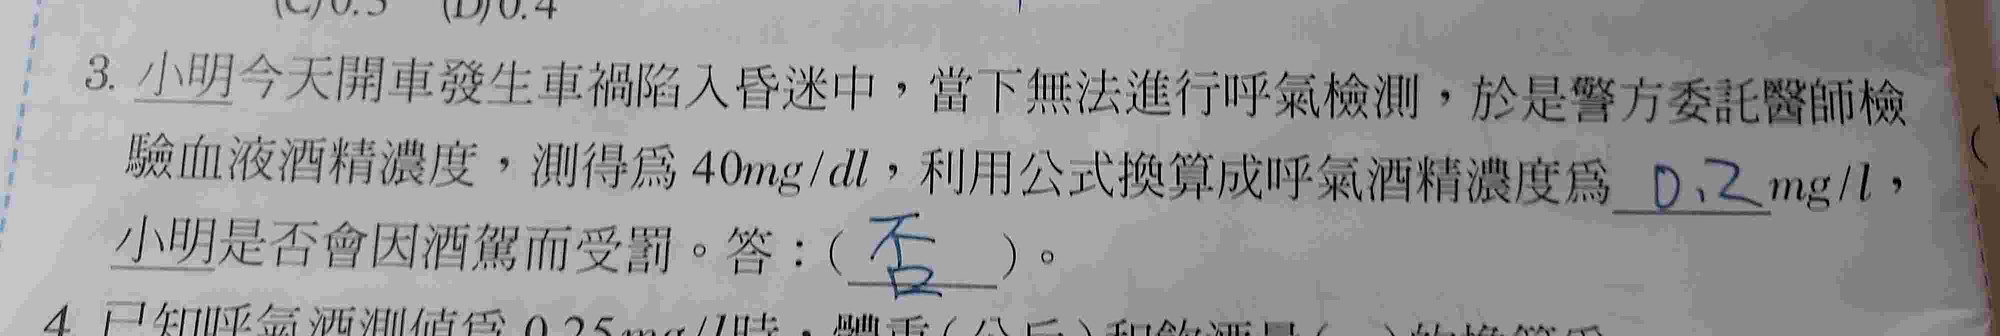 (C)0.3 (D)0.4
3. 小明今天開車發生車禍陷入昏迷中，當下無法進行呼氣檢測，於是警方委託醫師檢
驗血液酒精濃度，測得為 40mg/dl，利用公式換算成呼氣酒精濃度為 0.2 mg/l，
小明是否會因酒駕而受罰。答：( 否 )。
4. 已知呼氣酒測值為 0.25mg/l時，體重(公斤)和飲酒量(